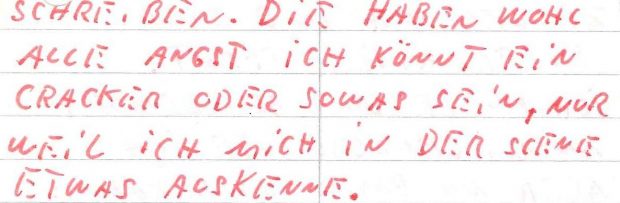 SCHREIBEN. DIE HABEN WOHL
ALLE ANGST ICH KÖNNT EIN
CRACKER ODER SOWAS SEIN, NUR
WEIL ICH MICH IN DER SCENE
ETWAS AUSKENNE.